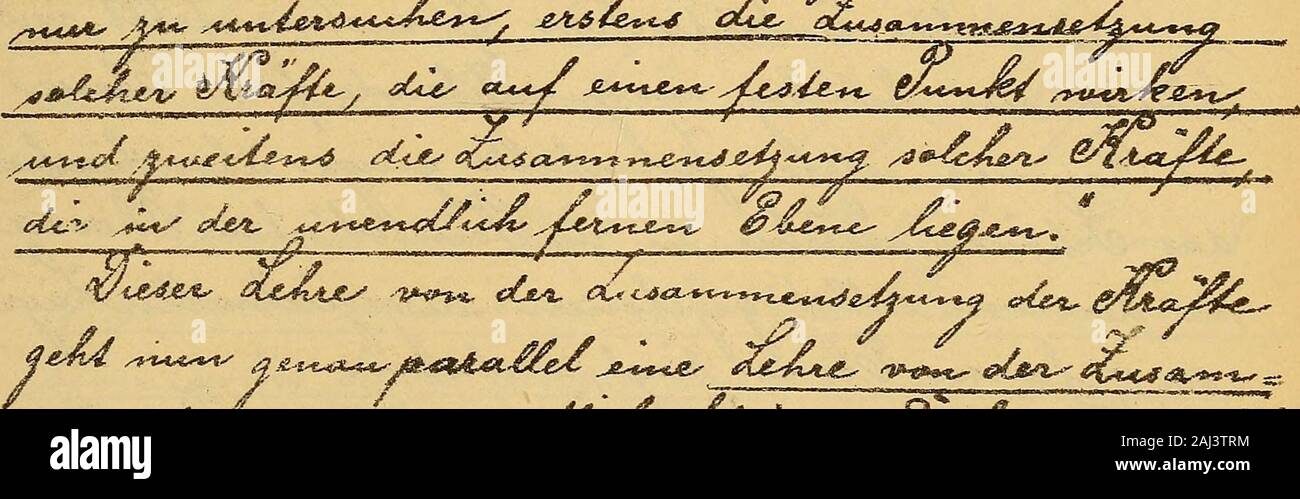 nur zu untersuchen, erstens die Zusammensetzung
solcher Kräfte, die auf einen festen Punkt wirken,
und zweitens die Zusammensetzung solcher Kräfte,
die in der unendlich fernen Ebene liegen."
Dieser Lehre von der Zusammensetzung der Kräfte
geht nun genau parallel eine Lehre von der Zusam=
alamy
Image ID: 2AJ3TRM
www.alamy.com